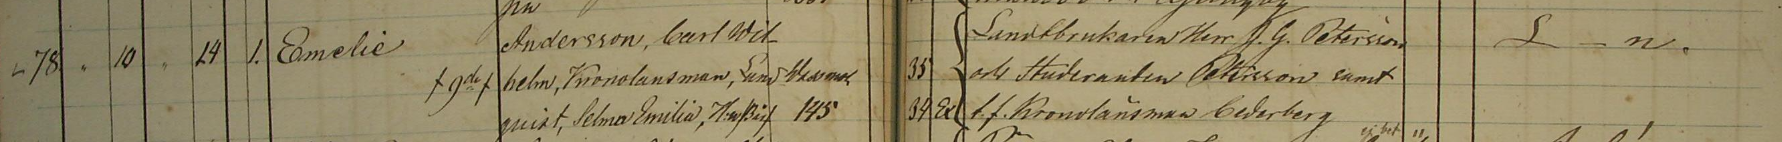 Andersson, Carl Wil- Landtbrukaren Herr J. G. Petersson L - n.
78 " 10 " 14 1. Emelie helm, Kronolänsman, Lund- Wadsmol 35 och Studeranten Petersson samt
quist, Selma Emilia, Hustru 145 34 t. f. Kronolänsman Cederberg